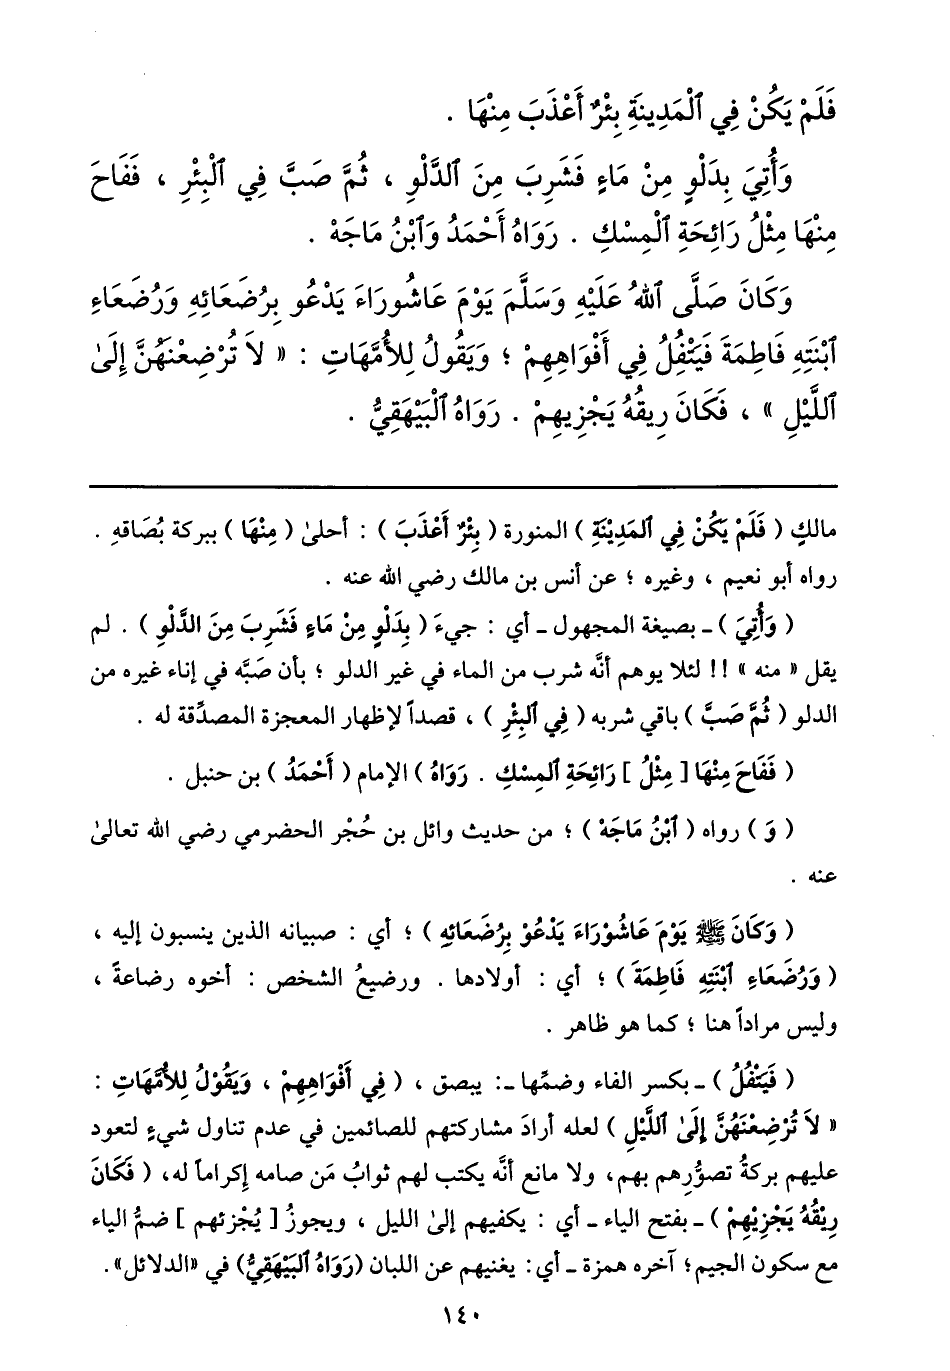 فَلَمْ يَكُنْ فِي ٱلْمَدِينَةِ بِئْرٌ أَعْذَبَ مِنْهَا .
وَأُتِيَ بِدَلْوٍ مِنْ مَاءٍ فَشَرِبَ مِنَ ٱلدَّلْوِ ، ثُمَّ صَبَّ فِي ٱلْبِئْرِ ، فَفَاحَ
مِنْهَا مِثْلُ رَائِحَةِ ٱلْمِسْكِ . رَوَاهُ أَحْمَدُ وَٱبْنُ مَاجَهْ .
وَكَانَ صَلَّى ٱللهُ عَلَيْهِ وَسَلَّمَ يَوْمَ عَاشُورَاءَ يَدْعُو بِرُضَعَائِهِ وَرُضَعَاءِ
ٱبْنَتِهِ فَاطِمَةَ فَيَتْفِلُ فِي أَفْوَاهِهِمْ ؛ وَيَقُولُ لِلأُمَّهَاتِ : « لاَ تُرْضِعْنَهُنَّ إِلَىٰ
ٱللَّيْلِ » ، فَكَانَ رِيقُهُ يَجْزِيهِمْ . رَوَاهُ ٱلْبَيْهَقِيُّ .
مالكٍ ( فَلَمْ يَكُنْ فِي ٱلمَدِيْنَةِ ) المنورة ( بِئْرٌ أَعْذَبَ ) : أحلىٰ ( مِنْهَا ) ببركة بُصَاقهِ .
رواه أبو نعيم ، وغيره ؛ عن أنس بن مالك رضي الله عنه .
( وَأُتِيَ ) ـ بصيغة المجهول ـ أي : جيءَ ( بِدَلْوٍ مِنْ مَاءٍ فَشَرِبَ مِنَ الدَّلْوِ ) . لم
يقل « منه » !! لئلا يوهم أنَّه شرب من الماء في غير الدلو ؛ بأن صَبَّه في إناء غيره من
الدلو ( ثُمَّ صَبَّ ) باقي شربه ( فِي ٱلبِئْرِ ) ، قصداً لإظهار المعجزة المصدِّقة له .
( فَفَاحَ مِنْهَا [ مِثْلُ ] رَائِحَةِ ٱلمِسْكِ . رَوَاهُ ) الإمام ( أَحْمَدُ ) بن حنبل .
( وَ ) رواه ( ٱبْنُ مَاجَهْ ) ؛ من حديث وائل بن حُجْر الحضرمي رضي الله تعالىٰ
عنه .
( وَكَانَ ﷺ يَوْمَ عَاشُوْرَاءَ يَدْعُوْ بِرُضَعَائِهِ ) ؛ أي : صبيانه الذين ينسبون إليه ،
( وَرُضَعَاءِ ٱبْنَتِهِ فَاطِمَةَ ) ؛ أي : أولادها . ورضيعُ الشخص : أخوه رضاعةً ،
وليس مراداً هنا ؛ كما هو ظاهر .
( فَيَتْفُلُ ) ـ بكسر الفاء وضمِّها ـ: يبصق ، ( فِي أَفْوَاهِهِمْ ، وَيَقُوْلُ لِلأُمَّهَاتِ :
« لاَ تُرْضِعْنَهُنَّ إِلَىٰ ٱللَّيْلِ ) لعله أرادَ مشاركتهم للصائمين في عدم تناول شيءٍ لتعود
عليهم بركةُ تصوُّرهم بهم، ولا مانع أنَّه يكتب لهم ثوابُ مَن صامه إكراماً له، ( فَكَانَ
رِيْقُهُ يَجْزِيْهِمْ ) ـ بفتح الياء ـ أي : يكفيهم إلىٰ الليل ، ويجوزُ [ يُجْزئهم ] ضمُّ الياء
مع سكون الجيم؛ آخره همزة ـ أي: يغنيهم عن اللبان (رَوَاهُ ٱلبَيْهَقِيُّ) في «الدلائل».
١٤٠